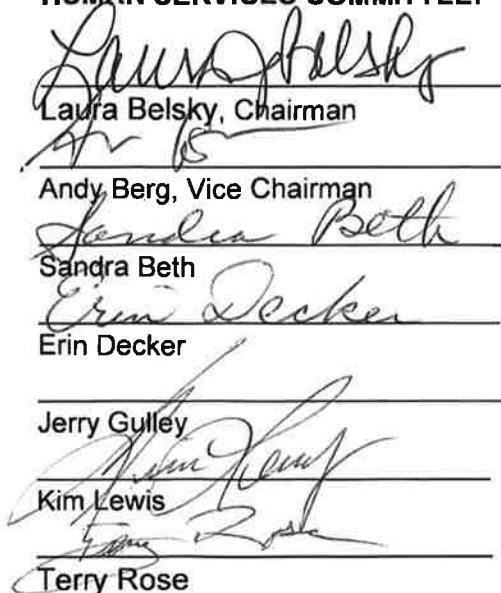 HUMAN SERVICES COMMITTEE:
Laura J Belsky
Laura Belsky, Chairman
Andy Berg, Vice Chairman
Sandra Beth
Sandra Beth
Erin Decker
Erin Decker
Jerry Gulley
Kim Lewis
Terry Rose
Terry Rose